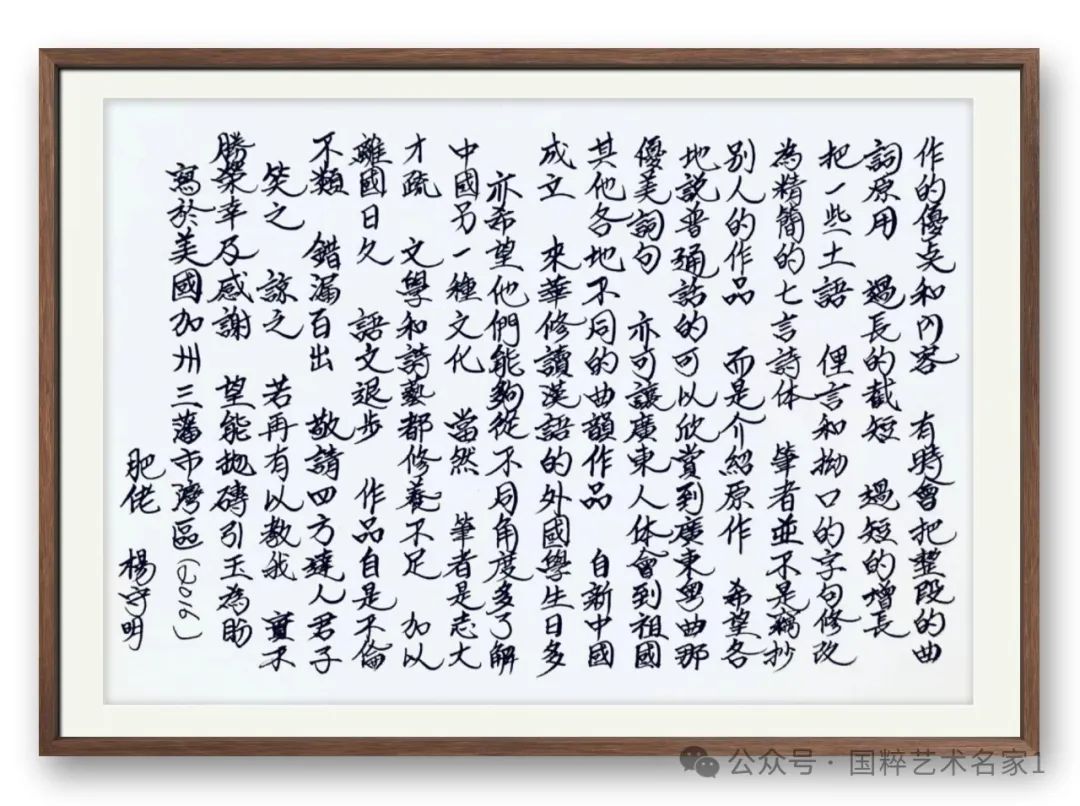 作的優点和內容 有時會把整段的曲
詞原用 過長的截短 過短的增長
把一些土語 俚言和拗口的字句修改
為精簡的七言詩体 筆者並不是竊抄
別人的作品 而是介紹原作 希望各
地說普通話的可以欣賞到廣東粤曲那
優美詞句 亦可讓廣東人体會到祖國
其他各地不同的曲韻作品 自新中國
成立 來華修讀漢語的外國學生日多
亦希望他們能夠從不同角度多了解
中國另一種文化 當然 筆者是志大
才疏 文學和詩藝都修養不足 加以
離國日久 語文退步 作品自是不倫
不類 錯漏百出 敬請四方達人君子
笑之 諒之 若再有以教我 實不
勝榮幸及感謝 望能拋磚引玉為盼
寫於美國加州三藩市灣區(2016)
肥佬 楊守明
公众号·国粹艺术名家1